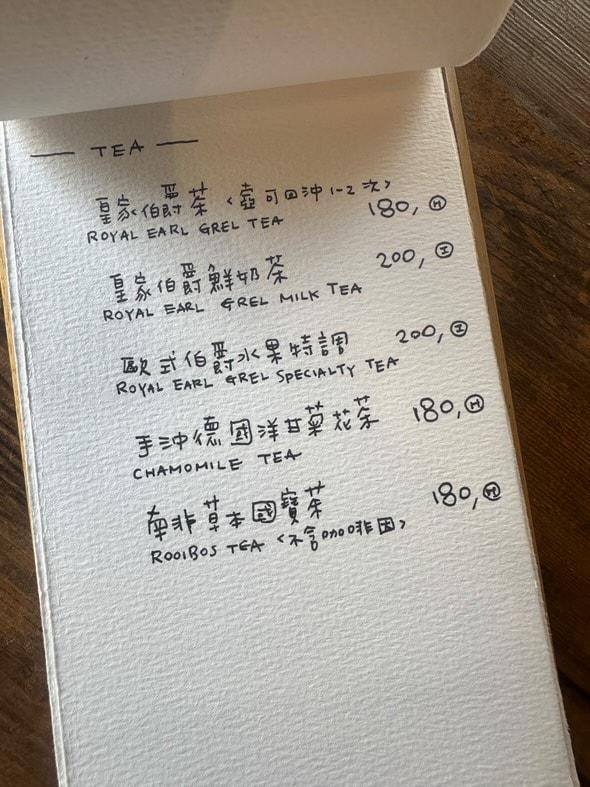 — TEA —
皇家伯爵茶 <壺可回沖1-2次>
ROYAL EARL GREL TEA 180, Ⓗ
皇家伯爵鮮奶茶 200, Ⓘ
ROYAL EARL GREL MILK TEA
歐式伯爵水果特調 200, Ⓘ
ROYAL EARL GREL SPECIALTY TEA
手沖德國洋甘菊花茶 180, Ⓗ
CHAMOMILE TEA
南非草本國寶茶 180, Ⓗ
ROOIBOS TEA <不含咖啡因>